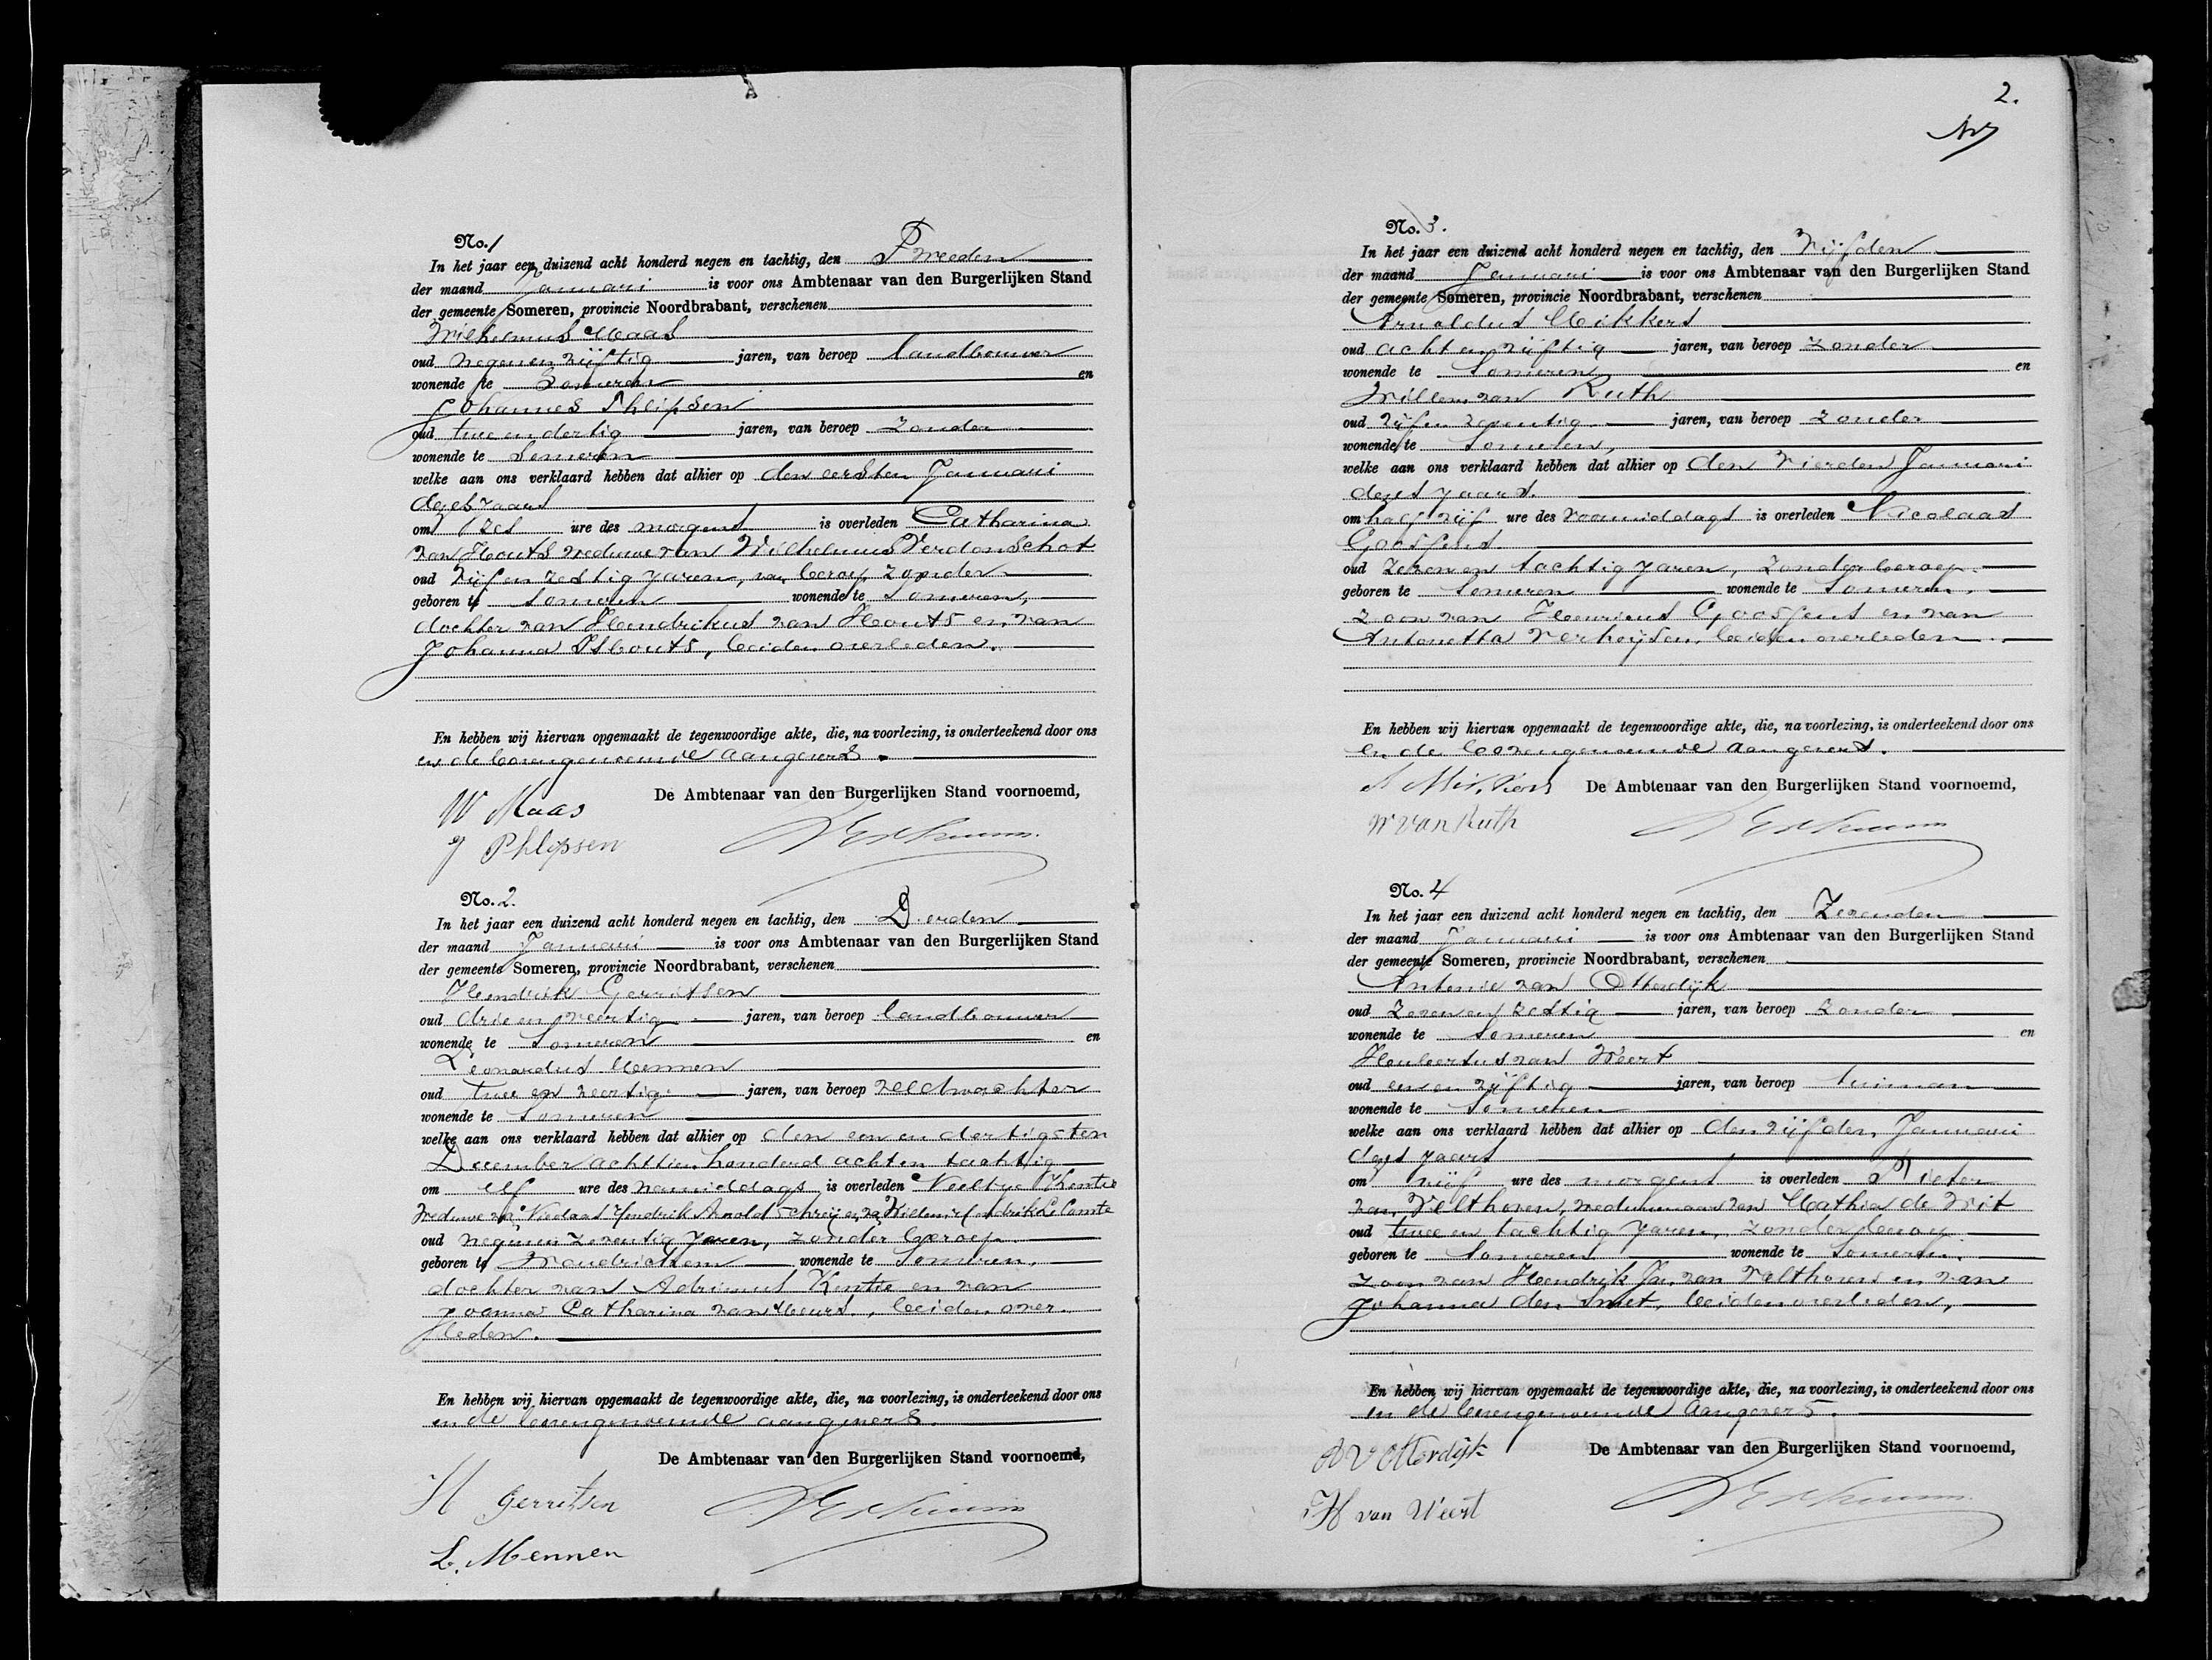 No. 1
In het jaar een duizend acht honderd negen en tachtig, den Tweeden
der maand Januari is voor ons Ambtenaar van den Burgerlijken Stand
der gemeente Someren, provincie Noordbrabant, verschenen
Wilhelmus Maas
oud negen en vijftig jaren, van beroep landbouwer
wonende te Someren en
Johannes Phlipsen
oud twee en dertig jaren, van beroep zonder
wonende te Someren
welke aan ons verklaard hebben dat alhier op den eersten Januari
dezes jaars
om zes ure des morgens is overleden Catharina
van Hout weduwe van Wilhelmus Verdonschot
oud vijf en zestig jaren, van beroep zonder
geboren te Someren wonende te Someren,
dochter van Hendrikus van Hout en van
Johanna IJsbouts, beiden overleden.
En hebben wij hiervan opgemaakt de tegenwoordige akte, die, na voorlezing, is onderteekend door ons
en de bovengenoemde aangevers.
De Ambtenaar van den Burgerlijken Stand voornoemd,
W Maas
J Phlipsen
No. 2.
In het jaar een duizend acht honderd negen en tachtig, den Derden
der maand Januari is voor ons Ambtenaar van den Burgerlijken Stand
der gemeente Someren, provincie Noordbrabant, verschenen
Hendrik Gerritsen
oud drie en veertig jaren, van beroep landbouwer
wonende te Someren en
Leonardus Mennen
oud twee en veertig jaren, van beroep veldwachter
wonende te Someren
welke aan ons verklaard hebben dat alhier op den een en dertigsten
December achttien honderd acht en tachtig
om elf ure des namiddags is overleden Neeltje Kentie
Weduwe van Nicolaas Hendrik Arnold Schreij en van Willem Hendrik Le Comte
oud negen en zeventig jaren, zonder beroep
geboren te Woudrichem wonende te Someren,
dochter van Adrianus Kentie en van
Joanna Catharina van Meurs, beiden over
leden.
En hebben wij hiervan opgemaakt de tegenwoordige akte, die, na voorlezing, is onderteekend door ons
en de bovengenoemde aangevers.
De Ambtenaar van den Burgerlijken Stand voornoemd,
H Gerritsen
L. Mennen
2.
No. 3.
In het jaar een duizend acht honderd negen en tachtig, den Vijfden
der maand Januari is voor ons Ambtenaar van den Burgerlijken Stand
der gemeente Someren, provincie Noordbrabant, verschenen
Arnoldus Mikkers
oud acht en vijftig jaren, van beroep zonder
wonende te Someren en
Willem van Ruth
oud vijf en zeventig jaren, van beroep zonder
wonende te Someren,
welke aan ons verklaard hebben dat alhier op den Vierden Januari
dezes jaars.
om half vijf ure des voormiddags is overleden Nicolaas
Goossens.
oud zeven en tachtig jaren, zonder beroep.
geboren te Someren wonende te Someren,
zoon van Henricus Goossens en van
Antonetta Verheijsen, beiden overleden.
En hebben wij hiervan opgemaakt de tegenwoordige akte, die, na voorlezing, is onderteekend door ons
en de bovengenoemde aangevers.
A Mikkers De Ambtenaar van den Burgerlijken Stand voornoemd,
W van Ruth
No. 4
In het jaar een duizend acht honderd negen en tachtig, den Zevenden
der maand Januari is voor ons Ambtenaar van den Burgerlijken Stand
der gemeente Someren, provincie Noordbrabant, verschenen
Antonie van Otterdijk
oud zeven en zestig jaren, van beroep zonder
wonende te Someren en
Houbertus van Weert
oud een en vijftig jaren, van beroep tuinman
wonende te Someren
welke aan ons verklaard hebben dat alhier op den vijfden Januari
dezes jaars
om vijf ure des morgens is overleden Pieter
van Velthoven, weduwnaar van Mathia de Wit
oud twee en tachtig jaren, zonder beroep
geboren te Someren wonende te Someren,
zoon van Hendrik Jan van Velthoven en van
Johanna den Smet, beiden overleden,
En hebben wij hiervan opgemaakt de tegenwoordige akte, die, na voorlezing, is onderteekend door ons
en de bovengenoemde aangevers.
A V Otterdijk De Ambtenaar van den Burgerlijken Stand voornoemd,
H van Weert